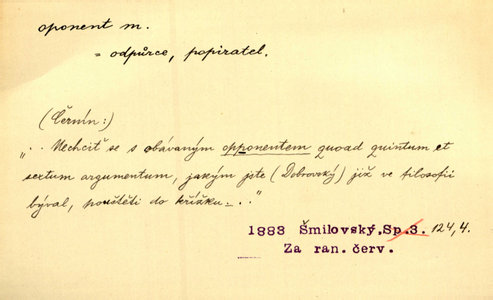 oponent m.
= odpůrce, popiratel.
(Černín:)
„.. Nechciť se s obávaným opponentem quoad quintum et
sextum argumentum, jakým jste (Dobrovský) již ve filosofii
býval, pouštěti do křížku_ .."
1883 Šmilovský, Sp.3. 124,4.
Za ran. červ.